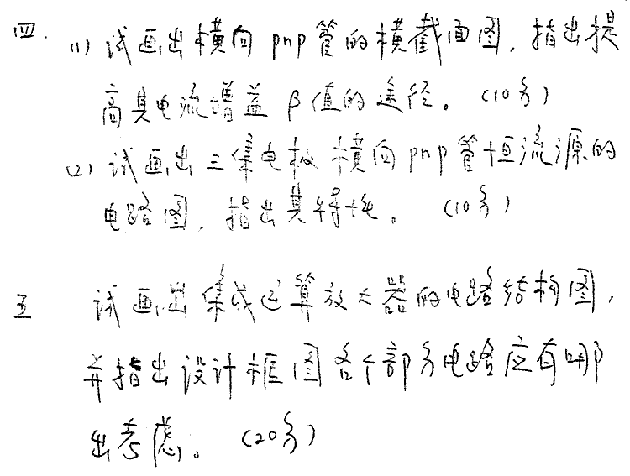 四. (1) 试画出横向pnp管的横截面图, 指出提
高其电流增益β值的途径。 (10分)
(2) 试画出三集电极横向pnp管恒流源的
电路图, 指出其特性。 (10分)
五 试画出集成运算放大器的电路结构图,
并指出设计框图各个部分电路应有哪
出考虑。 (20分)